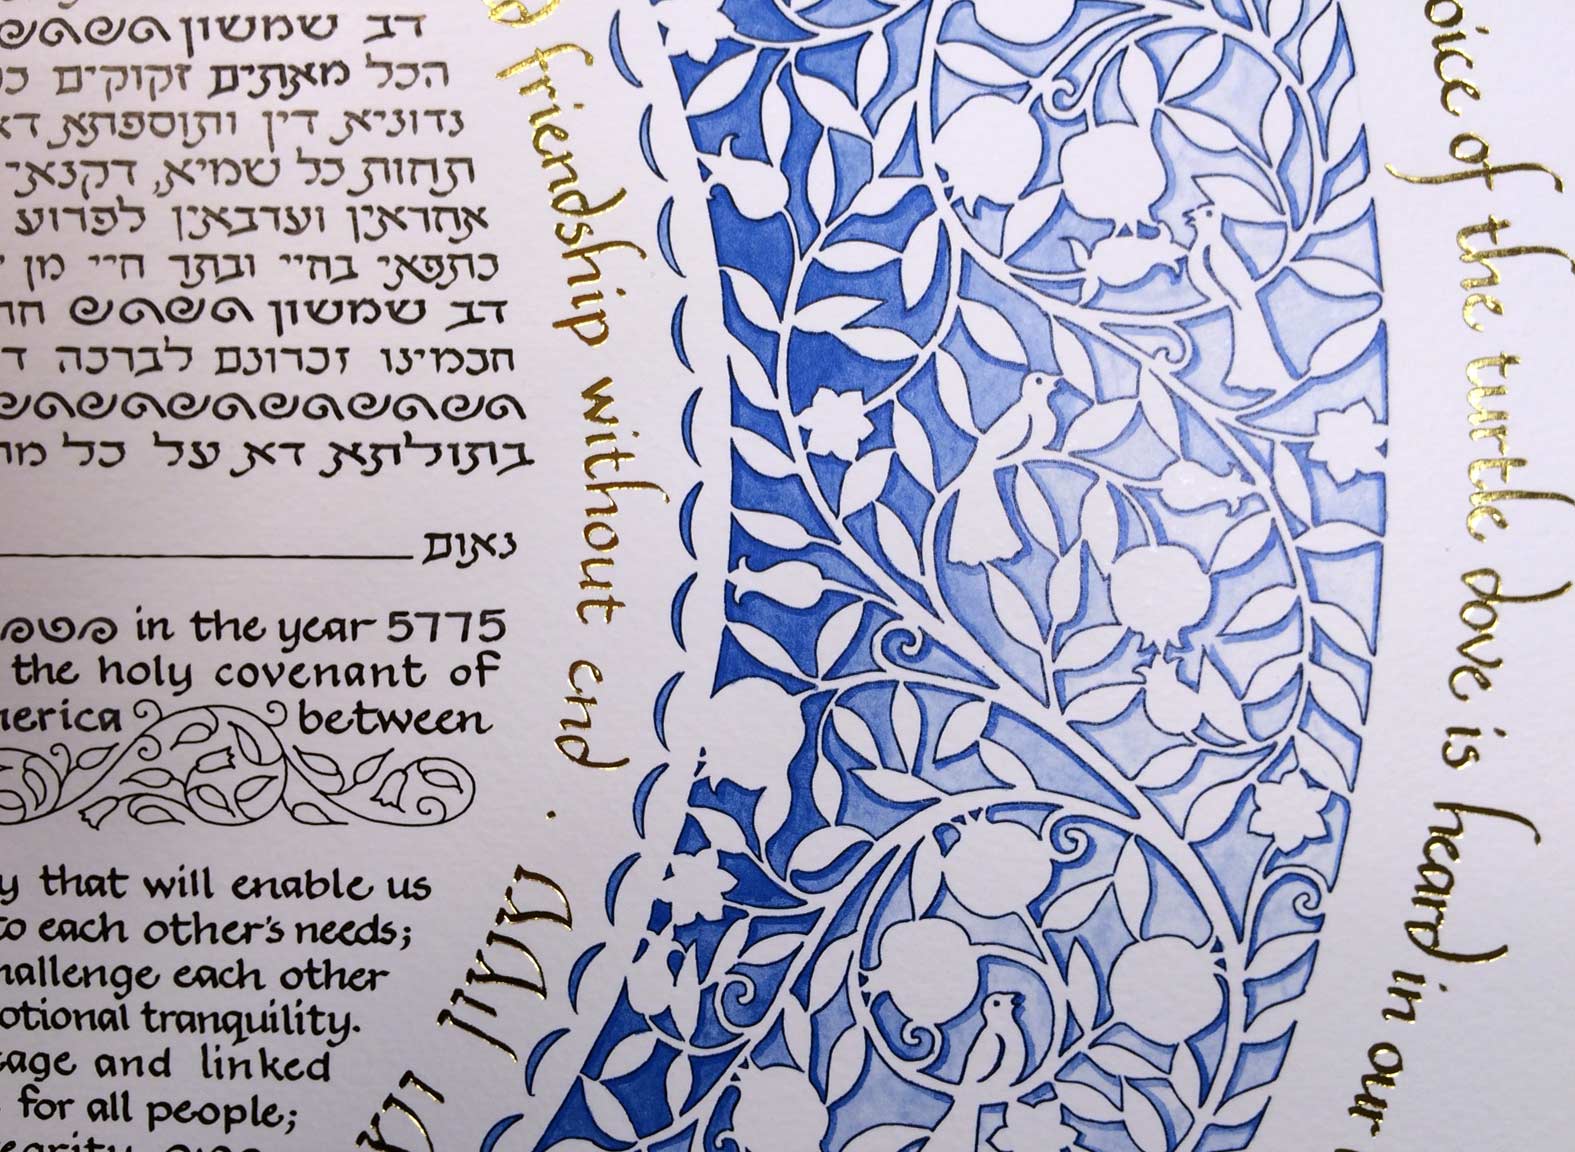 דב שמשון
הכל מאתים זקוקים
נדוניא דין ותוספתא
תחות כל שמיא, דקנאי
אחראין וערבאין לפרוע
כתפאי בחיי ובתר חיי מן
דב שמשון
חכמינו זכרונם לברכה
בתולתא דא על כל
נאום
in the year 5775
the holy covenant of
between
that will enable us
to each other's needs;
each other
tranquility.
and linked
for all people;
friendship without end
ששון
of the turtle dove is heard in our